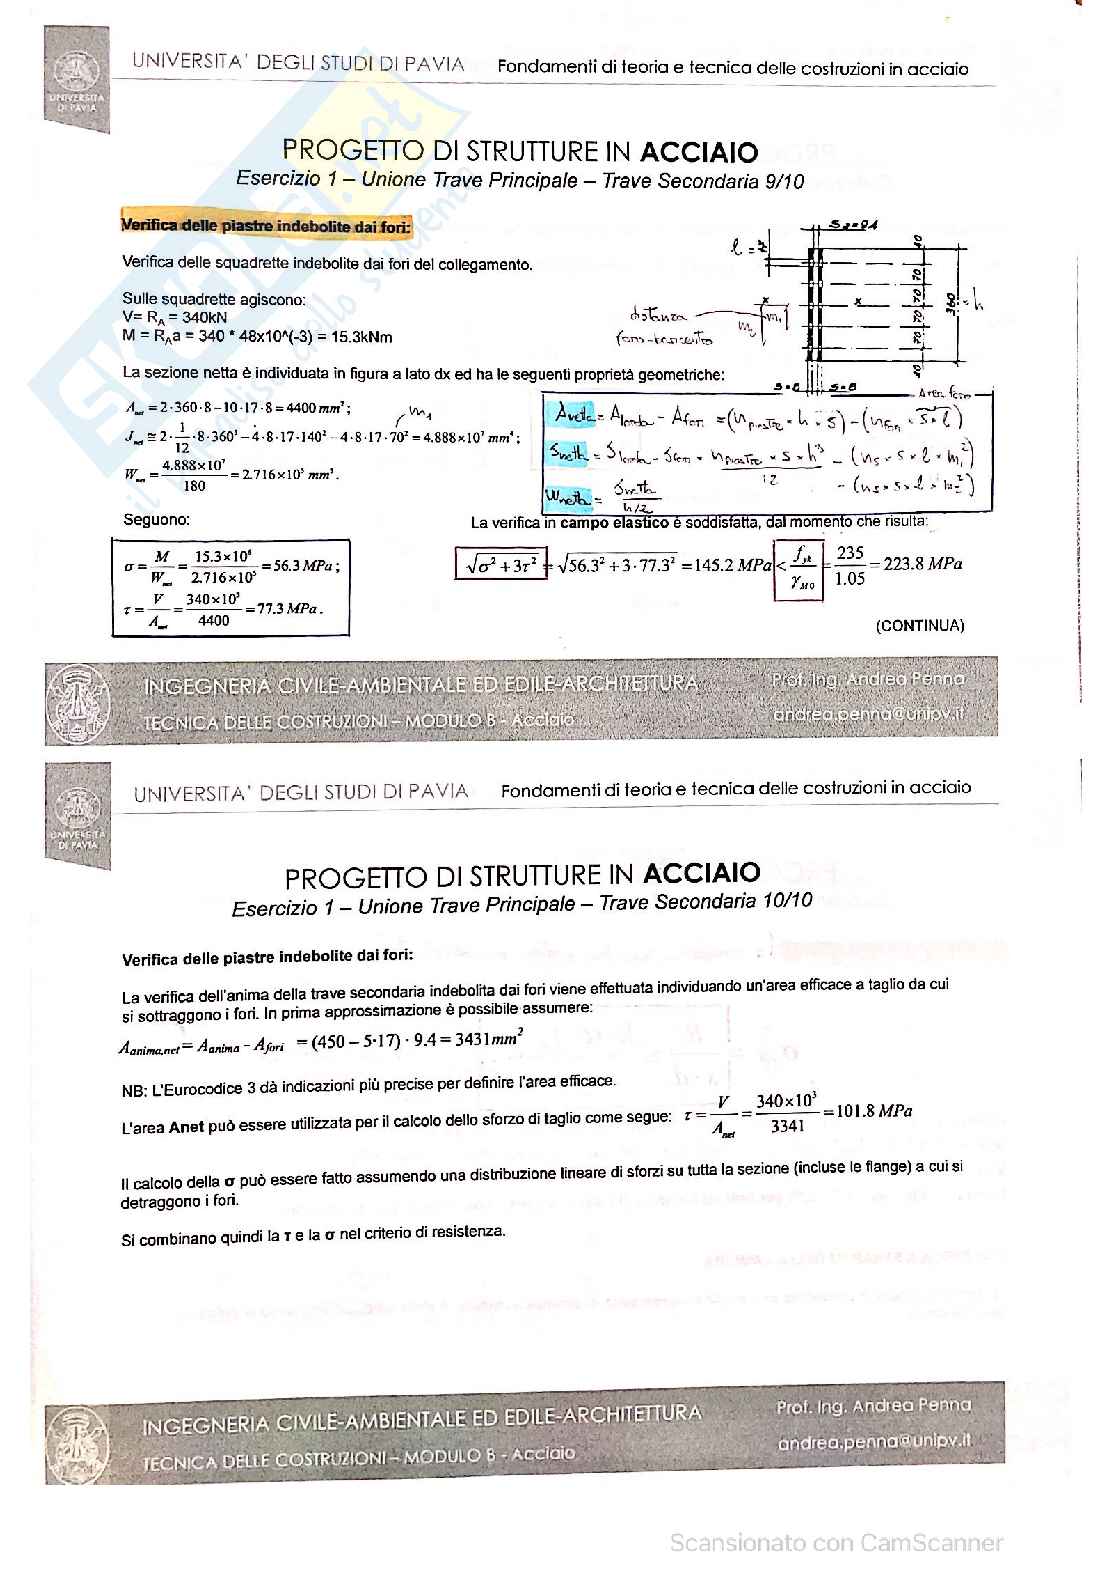 UNIVERSITA' DEGLI STUDI DI PAVIA Fondamenti di teoria e tecnica delle costruzioni in acciaio
UNIVERSITA
DI PAVIA
PROGETTO DI STRUTTURE IN ACCIAIO
Esercizio 1 – Unione Trave Principale – Trave Secondaria 9/10
Verifica delle piastre indebolite dai fori:
Verifica delle squadrette indebolite dai fori del collegamento.
Sulle squadrette agiscono:
V= RA = 340kN
M = RAa = 340 * 48x10^(-3) = 15.3kNm
distanza
foro-baricentro
m2 m1
x x
40
70
70
70
70
40
360 = h
s=8 s=8
La sezione netta è individuata in figura a lato dx ed ha le seguenti proprietà geometriche:
Anet = 2·360·8–10·17·8 = 4400 mm²;
m1
Jnet ≅ 2·1/12·8·360³–4·8·17·140²–4·8·17·70² = 4.888×10⁷ mm⁴;
Wnet = 4.888×10⁷/180 = 2.716×10⁵ mm³.
Area foro
Anetta = Alorda – Afori = (npiastre · h · s) – (nfori · s · l)
Jnetta = Jlorda – Jfori = npiastre · s · h³/12 – (nf · s · l · m1²)
– (nf · s · l · m2²)
Wnetta = Jnetta/h/2
Seguono:
La verifica in campo elastico è soddisfatta, dal momento che risulta:
σ = M/Wnet = 15.3×10⁶/2.716×10⁵ = 56.3 MPa;
τ = V/Anet = 340×10³/4400 = 77.3 MPa.
√σ²+3τ² = √56.3²+3·77.3² = 145.2 MPa < fyk/γM0 = 235/1.05 = 223.8 MPa
(CONTINUA)
INGEGNERIA CIVILE-AMBIENTALE ED EDILE-ARCHITETTURA Prof. Ing. Andrea Penna
TECNICA DELLE COSTRUZIONI – MODULO B - Acciaio andrea.penna@unipv.it
UNIVERSITA' DEGLI STUDI DI PAVIA Fondamenti di teoria e tecnica delle costruzioni in acciaio
UNIVERSITA
DI PAVIA
PROGETTO DI STRUTTURE IN ACCIAIO
Esercizio 1 – Unione Trave Principale – Trave Secondaria 10/10
Verifica delle piastre indebolite dai fori:
La verifica dell'anima della trave secondaria indebolita dai fori viene effettuata individuando un'area efficace a taglio da cui
si sottraggono i fori. In prima approssimazione è possibile assumere:
Aanima,net = Aanima - Afori = (450 – 5·17) · 9.4 = 3431 mm²
NB: L'Eurocodice 3 dà indicazioni più precise per definire l'area efficace.
L'area Anet può essere utilizzata per il calcolo dello sforzo di taglio come segue: τ = V/Anet = 340×10³/3341 = 101.8 MPa
Il calcolo della σ può essere fatto assumendo una distribuzione lineare di sforzi su tutta la sezione (incluse le flange) a cui si
detraggono i fori.
Si combinano quindi la τ e la σ nel criterio di resistenza.
INGEGNERIA CIVILE-AMBIENTALE ED EDILE-ARCHITETTURA Prof. Ing. Andrea Penna
TECNICA DELLE COSTRUZIONI – MODULO B - Acciaio andrea.penna@unipv.it
Scansionato con CamScanner